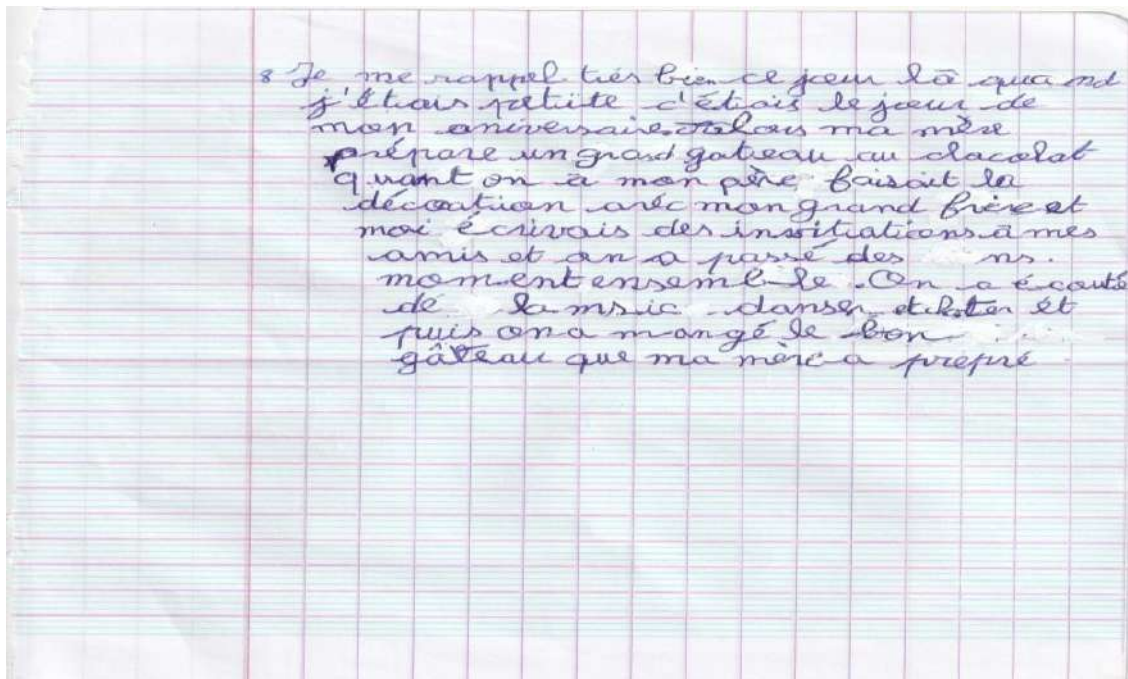 8 Je me rappel très bien ce jour là quand
j'étiais petite c'étiais le jour de
mon aniversaire alors ma mère
prépare un grand gateau au clacolat
quant on à mon père faisait la
décoration avec mon grand frère et
moi écrivais des invitiations à mes
amis et on a passé des ns.
moment ensemble. On a écouté
de la msic danser et et
puis on a mangé le bon
gâteau que ma mère a prepré